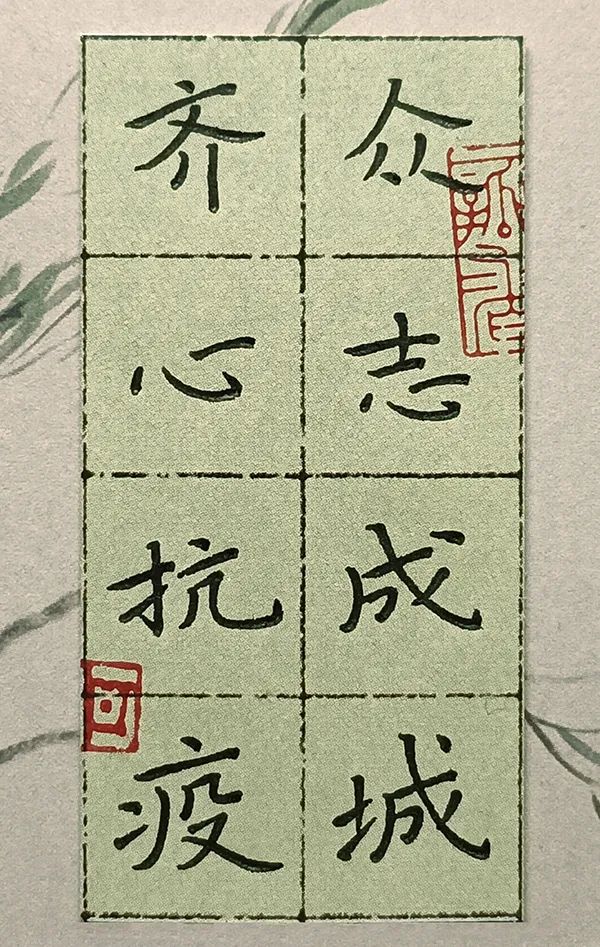 众志成城
齐心抗疫